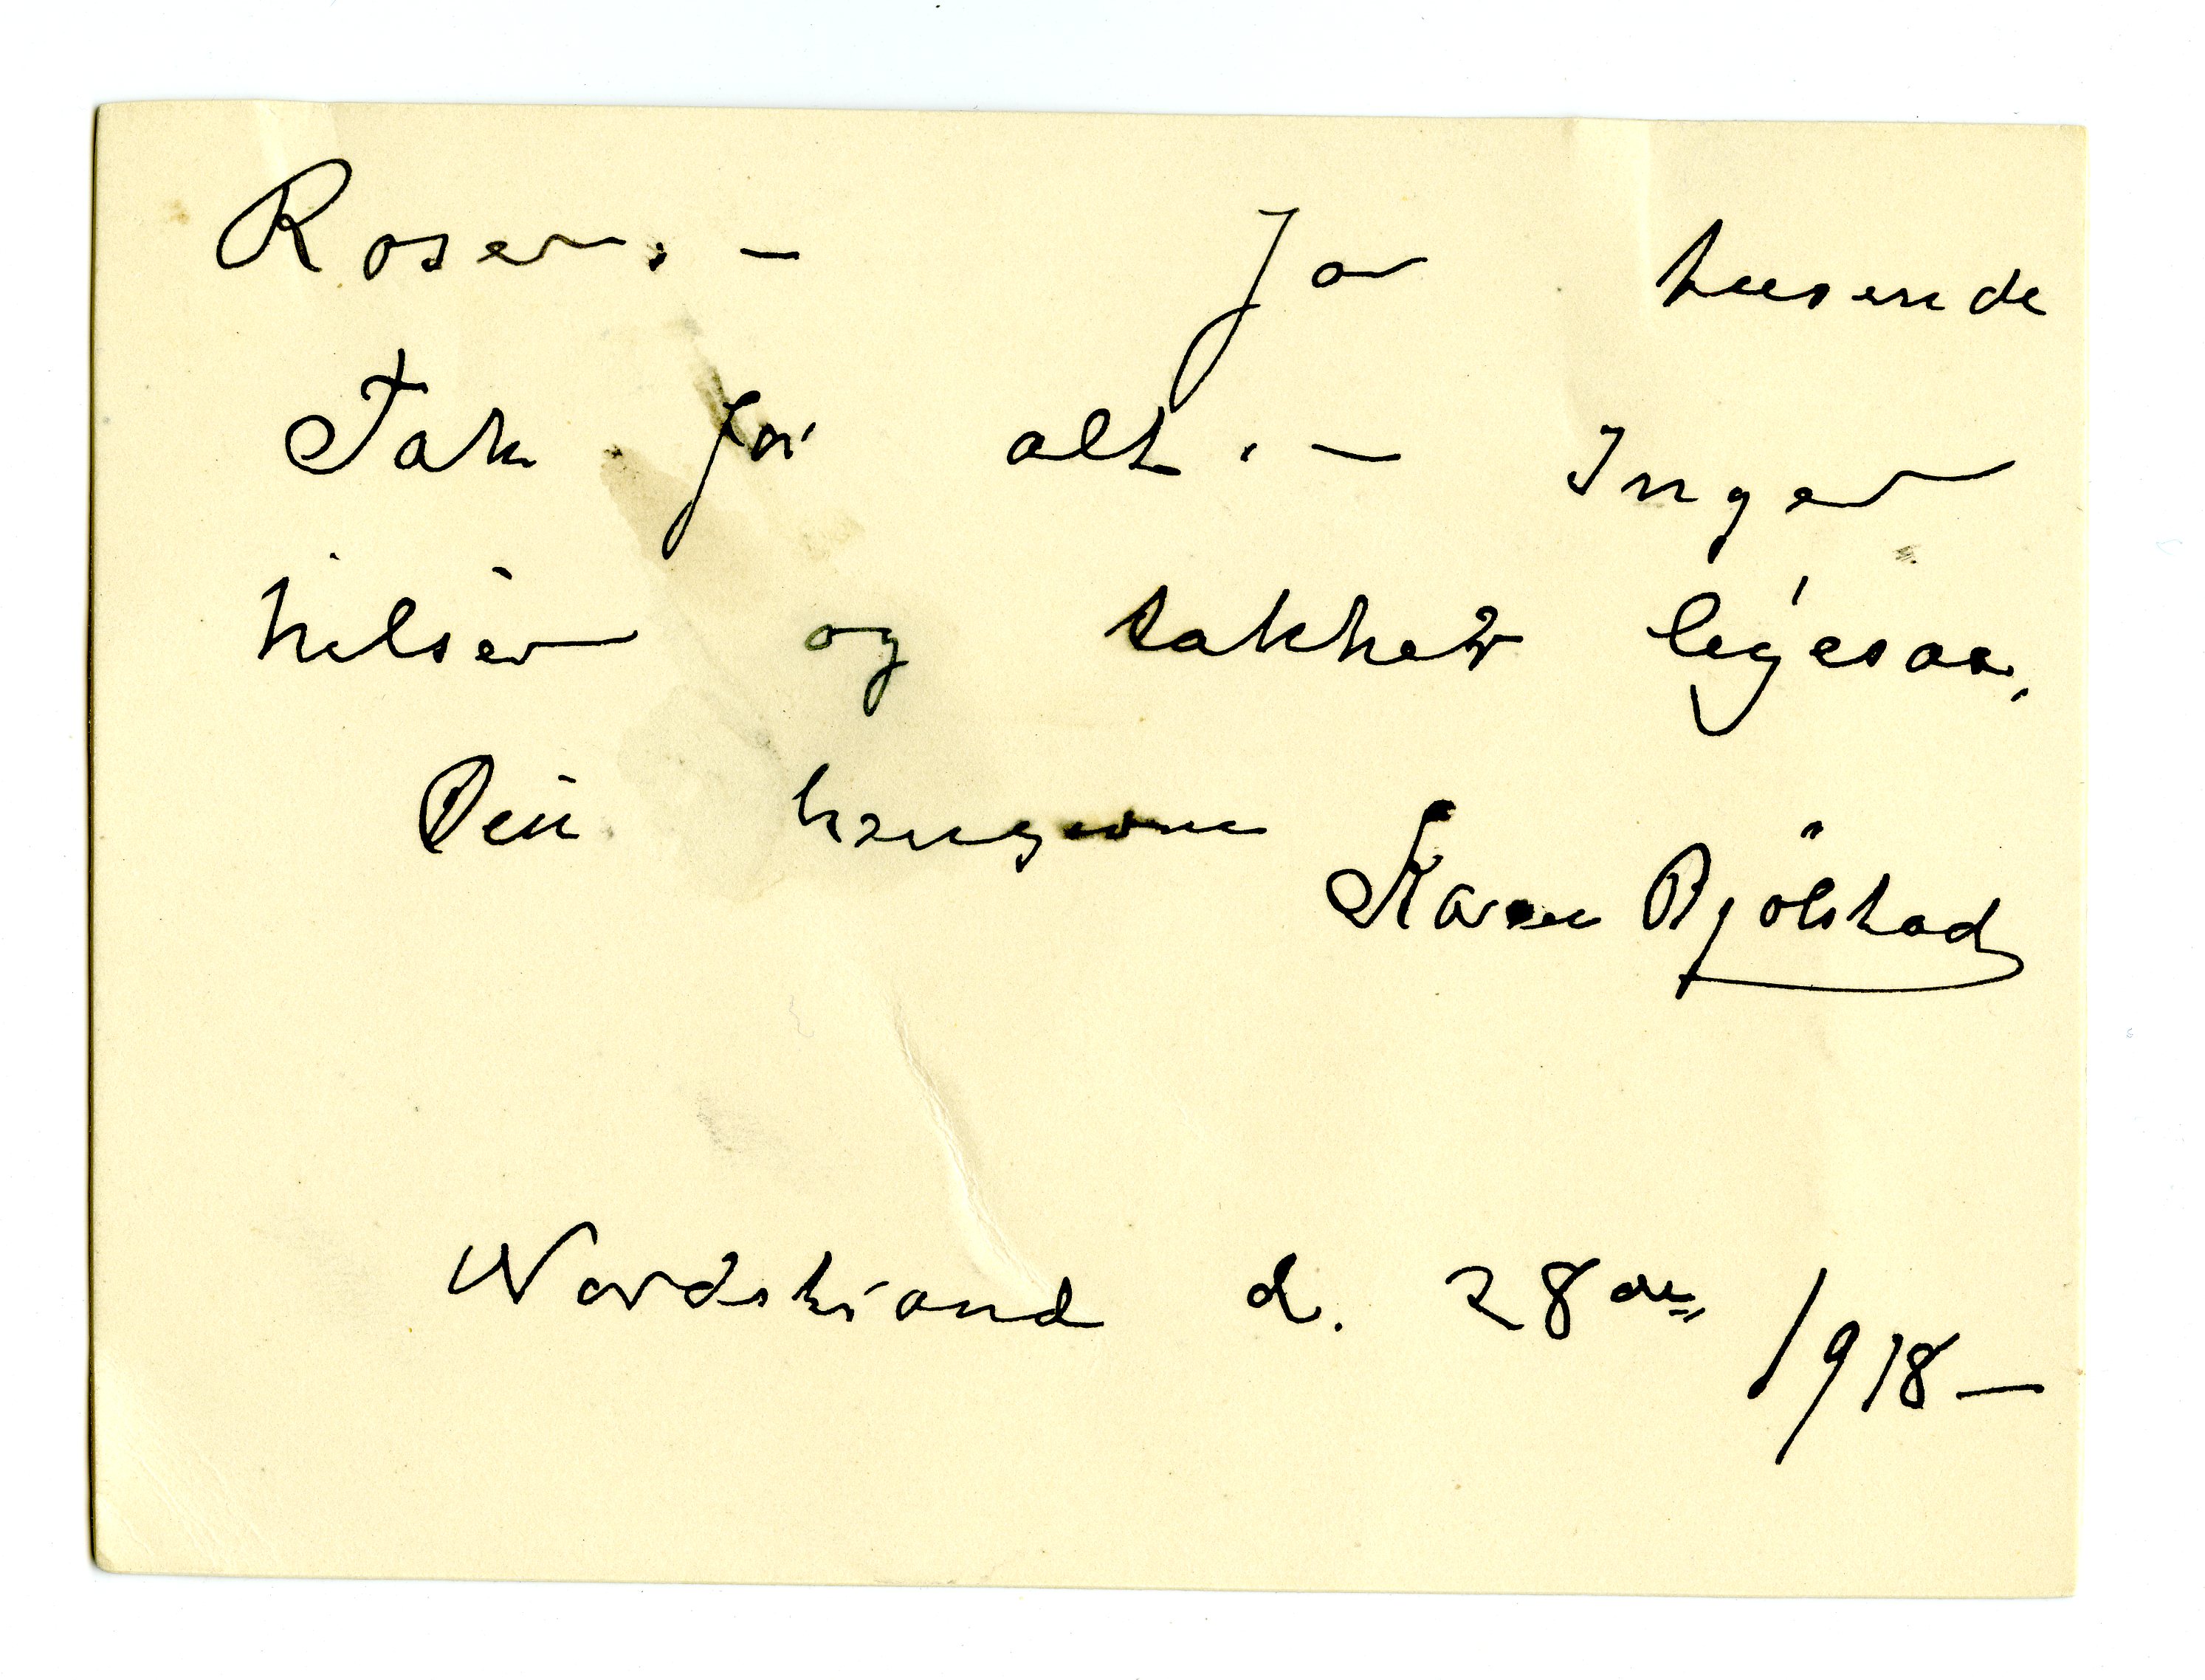 Roser. – Ja tusende
Tak for alt. – Inger
hilser og takker ligesaa,
Din hengivne
Karen Bjölstad
Nordstrand d. 28de
1918 –